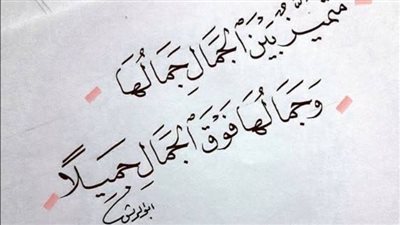 متميزٌ بَيْنَ الجَمَالِ جَمَالُهَا
وَجَمَالُهَا فَوْقَ الجَمَالِ جَمِيلًا